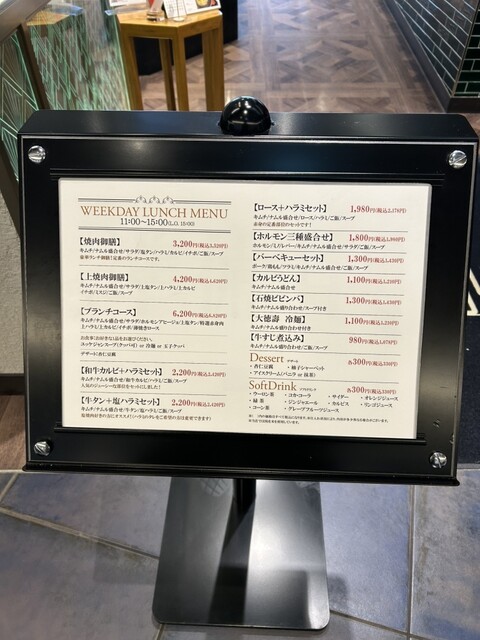 WEEKDAY LUNCH MENU
11:00～15:00(L.O. 15:00)
【焼肉御膳】 3,200円(税込3,520円)
キムチ/ナムル盛合せ/サラダ/塩タン/ハラミ/カルビ/イチボ/ご飯/スープ
豪華ランチ御膳!定番のランチコースです。
【上焼肉御膳】 4,200円(税込4,620円)
キムチ/ナムル盛合せ/サラダ/上塩タン/上ハラミ/上カルビ
イチボ/ミスジ/ご飯/スープ
【ブランチコース】 6,200円(税込6,820円)
キムチ/ナムル盛合せ/サラダ/ホルモンアヒージョ/上塩タン/特選赤身肉
上ハラミ/上カルビ/イチボ/薄焼きロース
お食事:お好きな1品をお選びください。
ユッケジャンスープ(クッパ可) or 冷麺 or 玉子クッパ
デザート:杏仁豆腐
【和牛カルビ+ハラミセット】 2,200円(税込2,420円)
キムチ/ナムル盛合せ/和牛カルビ/ハラミ/ご飯/スープ
【牛タン+塩ハラミセット】 2,200円(税込2,420円)
キムチ/ナムル盛合せ/牛タン/塩ハラミ/ご飯/スープ
【ロース+ハラミセット】 1,980円(税込2,178円)
キムチ/ナムル盛合せ/ロース/ハラミ/ご飯/スープ
赤身の定番部位のセットです!
【ホルモン三種盛合せ】 1,800円(税込1,980円)
【バーベキューセット】 1,300円(税込1,430円)
ポーク/鶏もも/フランク/キムチ/ナムル盛合せ/ご飯/スープ
【カルビうどん】 1,100円(税込1,210円)
キムチ/ナムル盛合せ
【石焼ビビンバ】 1,300円(税込1,430円)
キムチ/ナムル盛り合わせ/スープ付き
【大徳壽 冷麺】 1,100円(税込1,210円)
キムチ/ナムル盛り合わせ付き
【牛すじ煮込み】 980円(税込1,078円)
キムチ/ナムル盛り合わせ/ご飯/スープ
Dessert デザート 各300円(税込330円)
・杏仁豆腐 ・柚子シャーベット
・アイスクリーム(バニラ or 抹茶)
SoftDrink ソフトドリンク 各300円(税込330円)
・ウーロン茶 ・コカ・コーラ ・サイダー ・オレンジジュース
・緑茶 ・ジンジャエール ・カルピス ・リンゴジュース
・コーン茶 ・グレープフルーツジュース